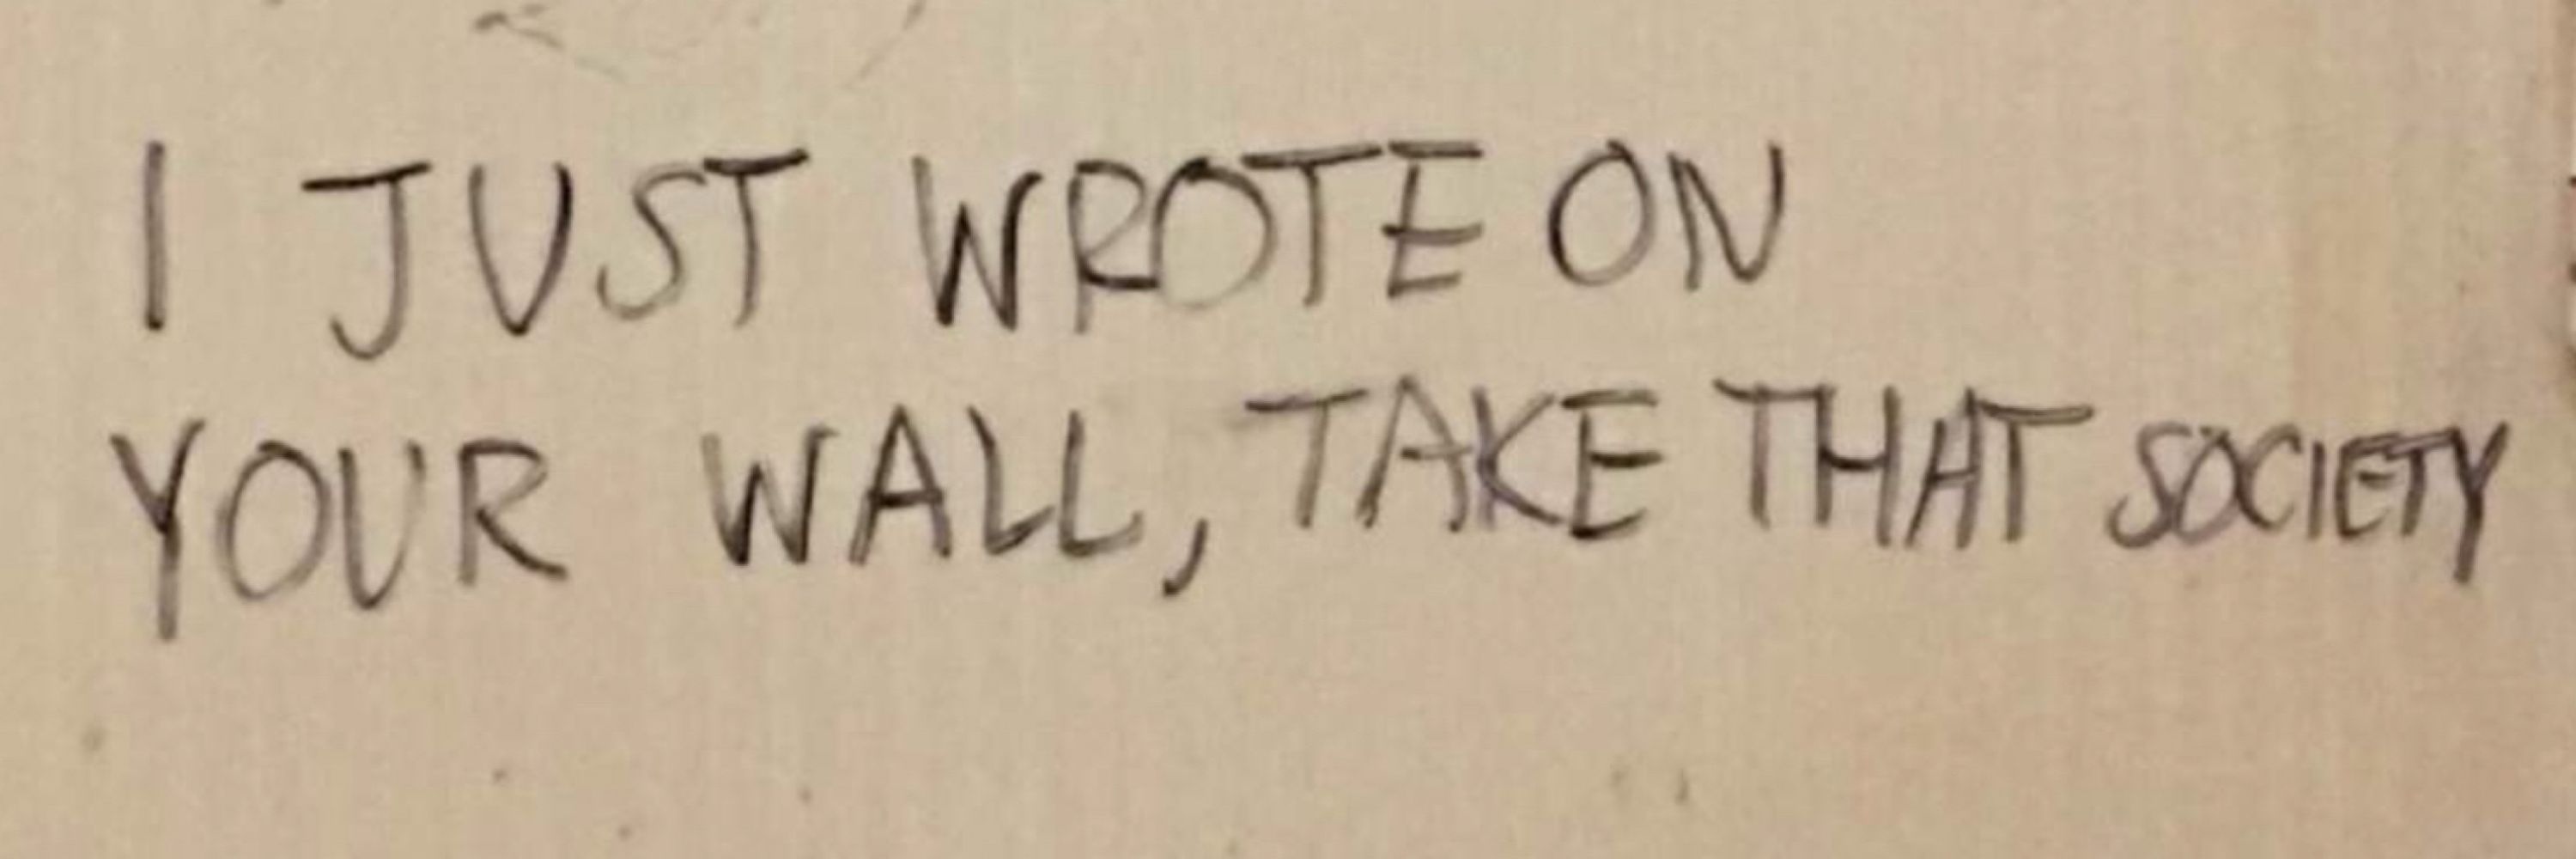 I JUST WROTE ON
YOUR WALL, TAKE THAT SOCIETY